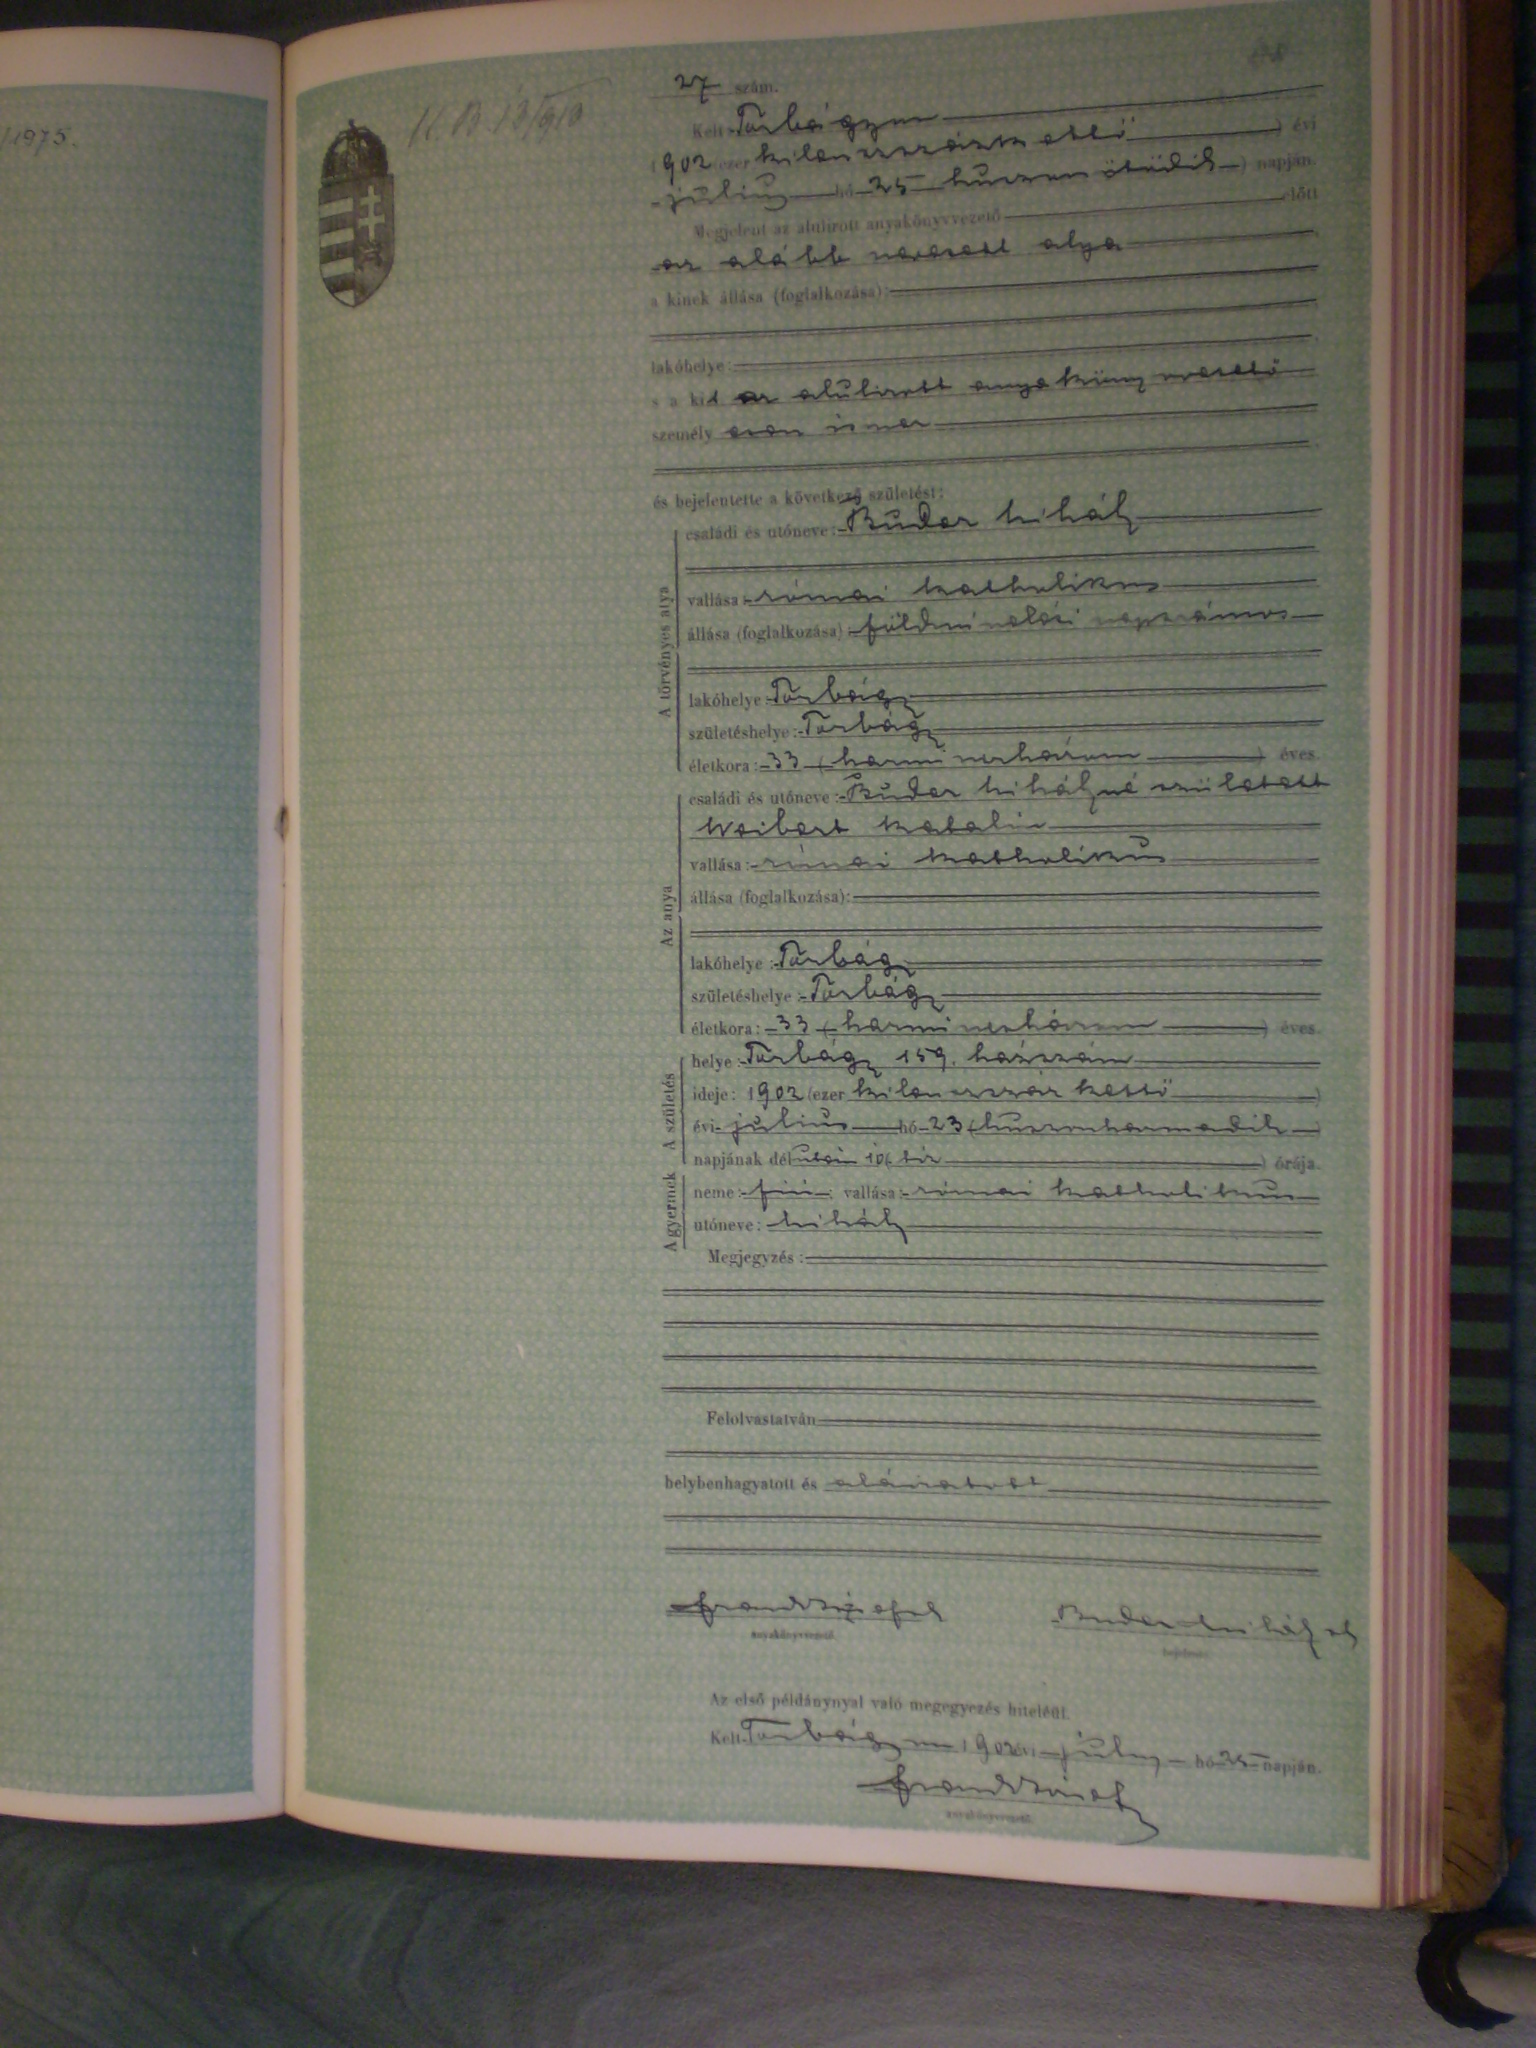 /1975.
27 szám.
Kelt Torbágyon
1902 (ezer kilenczszázkettő ) évi
július hó 25 huszonötödik ) napján.
Megjelent az alulirott anyakönyvvezető előtt
az alább nevezett atya
a kinek állása (foglalkozása):
lakóhelye:
s a kit az alulirott anyakönyvvezető
személyesen ismer
és bejelentette a következő születést:
A törvényes atya
családi és utóneve: Buder Mihály
vallása: római katholikus
állása (foglalkozása): földmivelési napszámos
lakóhelye Torbágy
születéshelye: Torbágy
életkora: 33 (harminczhárom ) éves.
Az anya
családi és utóneve: Buder Mihályné született
Katalin
vallása: római katholikus
állása (foglalkozása):
lakóhelye: Torbágy
születéshelye: Torbágy
életkora: 33 (harminczhárom ) éves.
A születés
helye: Torbágy 159. házszám
ideje: 1902 (ezer kilenczszáz kettő )
évi július hó 23 (huszonharmadik )
napjának délután 10 (tíz ) órája.
A gyermek
neme: fiú; vallása: római katholikus
utóneve: Mihály
Megjegyzés:
Felolvastatván
helybenhagyatott és aláiratott
anyakönyvvezető
Buder Mihály
bejelentő
Az első példánynyal való megegyezés hiteléül.
Kelt Torbágyon 1902 évi july hó 25 napján.
anyakönyvvezető